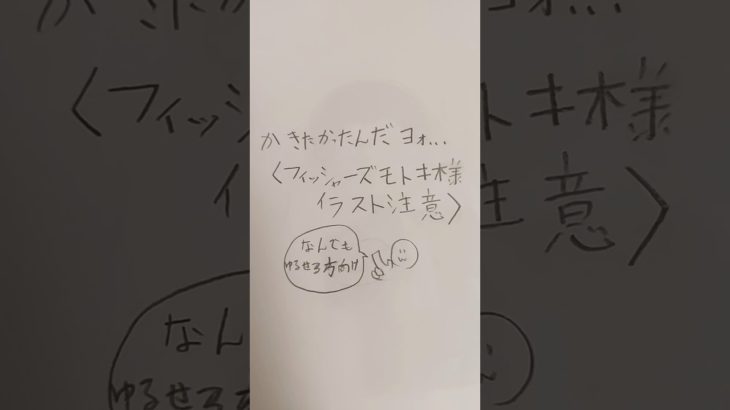 かきたかったんだヨォ...
〈フィッシャーズモトキ様
イラスト注意〉
なんでも
ゆるせる方向け